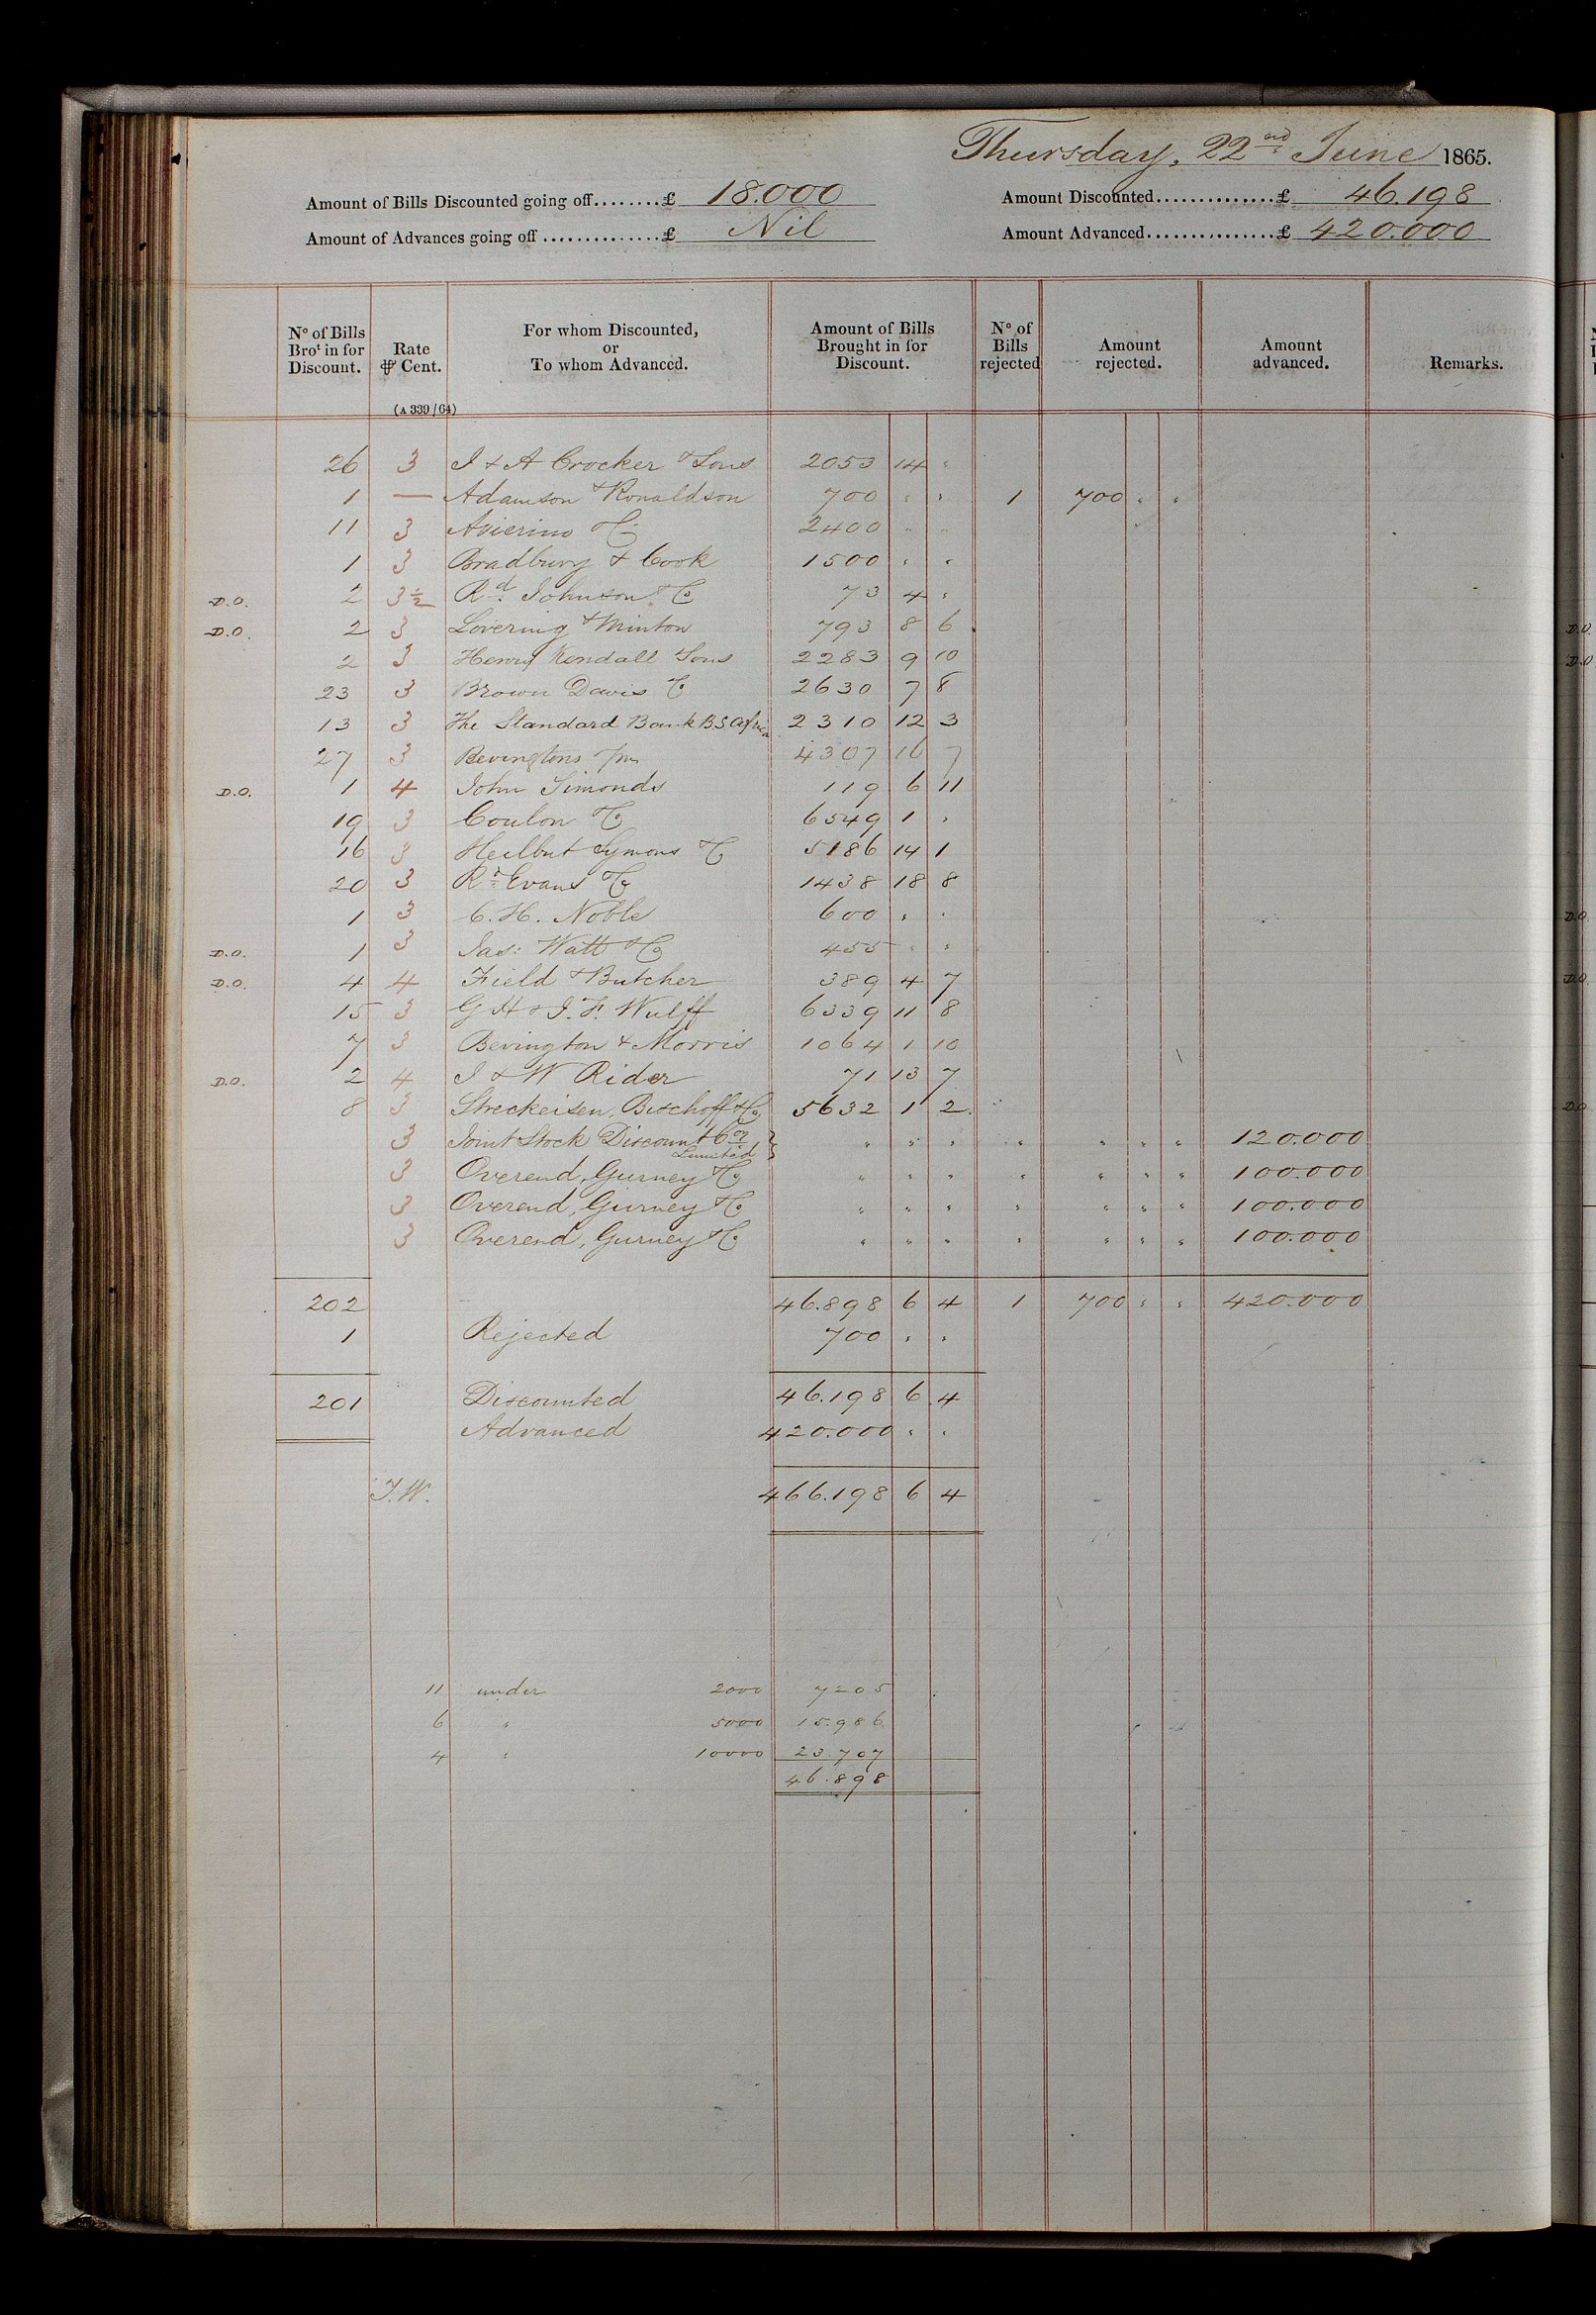 Thursday, 22nd June 1865.
Amount of Bills Discounted going off........£ 18.000 Amount Discounted...............£ 46.198
Amount of Advances going off...............£ Nil Amount Advanced................£ 420.000
No of Bills Brot in for Discount. Rate ⅌ Cent. (A 339/64) For whom Discounted, or To whom Advanced. Amount of Bills Brought in for Discount. No of Bills rejected Amount rejected. Amount advanced. Remarks.
26 3 I & A Crocker & Sons 2053 14 "
1 — Adamson & Ronaldson 700 " " 1 700 " "
11 3 Avierino & Co 2400 " "
1 3 Bradbury & Cook 1500 " "
D.O. 2 3½ Rd. Johnson & Co 73 4 "
D.O. 2 3 Lovering & Minton 793 8 6
2 3 Henry Kendall & Sons 2283 9 10
23 3 Brown Davis & Co 2630 7 8
13 3 The Standard Bank B.S. Africa 2310 12 3
27 3 Bevingtons 4307 16 7
D.O. 1 4 John Simonds 119 6 11
19 3 Coulon & Co 6549 1 "
16 3 Heilbut Symons & Co 5186 14 1
20 3 Rd Evans & Co 1438 18 8
1 3 C. H. Noble 600 " "
D.O. 1 3 Jas: Watt & Co 455 " "
D.O. 4 4 Field & Butcher 389 4 7
15 3 G H & I. F. Wulff 6339 11 8
7 3 Bevington & Morris 1064 1 10
D.O. 2 4 I & W Rider 71 13 7
8 3 Streckeisen, Bischoff & Co 5632 1 2
3 Joint Stock Discount Coy Limited } " " " " " " " 120.000
3 Overend, Gurney & Co " " " " " " " 100.000
3 Overend, Gurney & Co " " " " " " " 100.000
3 Overend, Gurney & Co " " " " " " " 100.000
202 46.898 6 4 1 700 " " 420.000
1 Rejected 700 " "
201 Discounted 46.198 6 4
Advanced 420.000 " "
J.W. 466.198 6 4
11 under 2000 7205
6 " 5000 15.986
4 " 10000 23.707
46.898
D.O
D.O
D.O
D.O
D.O